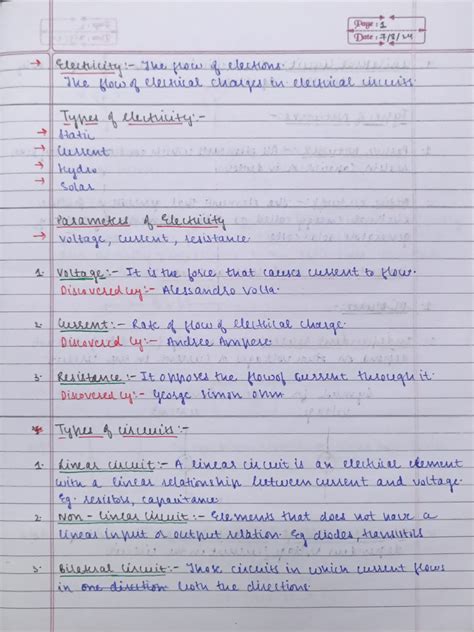 Page: 1
Date: 7/8/24
→ Electricity:- The flow of electrons.
The flow of electrical charges in electrical circuits.
Types of electricity:-
→ Static
→ Current
→ Hydro
→ Solar
Parameters of Electricity
→ Voltage, current, resistance.
1. Voltage:- It is the force that causes current to flow.
Discovered by:- Alessandro Volta.
2. Current:- Rate of flow of electrical charge.
Discovered by:- Andree Ampere
3. Resistance:- It opposes the flow of current through it.
Discovered by:- George Simon Ohm
* Types of circuits:-
1. Linear circuit:- A linear circuit is an electrical element
with a linear relationship between current and voltage.
Eg. resistors, capacitance.
2. Non-linear circuit:- Elements that does not have a
linear input or output relation. Eg diodes, transistors
3. Bilateral circuit:- Those circuits in which current flows
in one direction both the directions.